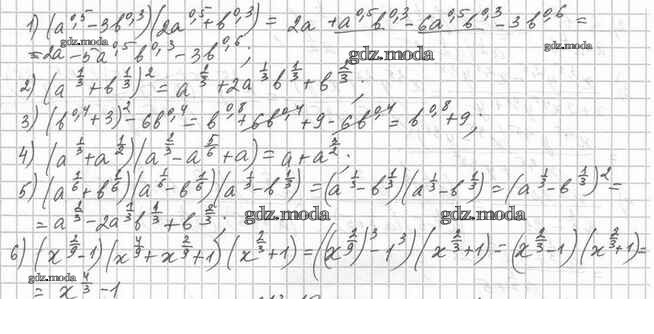 1) (a^0,5 - 3b^0,3)(2a^0,5 + b^0,3) = 2a + a^0,5 b^0,3 - 6a^0,5 b^0,3 - 3b^0,6 =
gdz.moda gdz.moda gdz.moda
= 2a - 5a^0,5 b^0,3 - 3b^0,6;
2) (a^1/3 + b^1/3)^2 = a^2/3 + 2a^1/3 b^1/3 + b^2/3;
3) (b^0,4 + 3)^2 - 6b^0,4 = b^0,8 + 6b^0,4 + 9 - 6b^0,4 = b^0,8 + 9;
4) (a^1/3 + a^1/2)(a^2/3 - a^5/6 + a) = a + a^3/2;
5) (a^1/6 + b^1/6)(a^1/6 - b^1/6)(a^1/3 - b^1/3) = (a^1/3 - b^1/3)(a^1/3 - b^1/3) = (a^1/3 - b^1/3)^2 =
= a^2/3 - 2a^1/3 b^1/3 + b^2/3;
gdz.moda gdz.moda
6) (x^2/9 - 1)(x^4/9 + x^2/9 + 1)(x^2/3 + 1) = ((x^2/9)^3 - 1^3)(x^2/3 + 1) = (x^2/3 - 1)(x^2/3 + 1) =
gdz.moda
= x^4/3 - 1